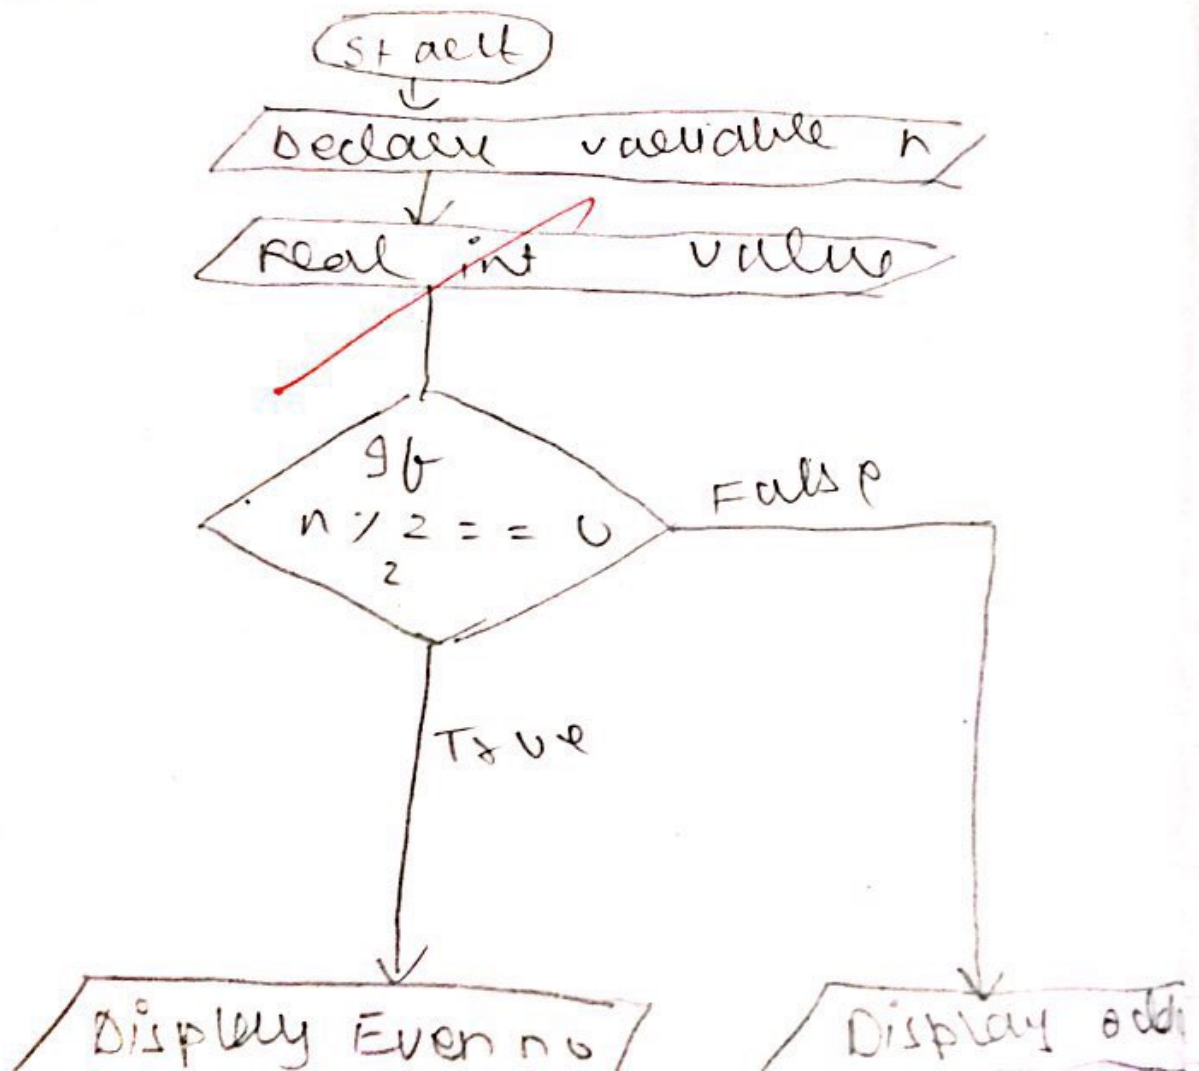 Start
Declare variable n
Read int value
If
n % 2 = = 0
?
False
True
Display Even no
Display odd